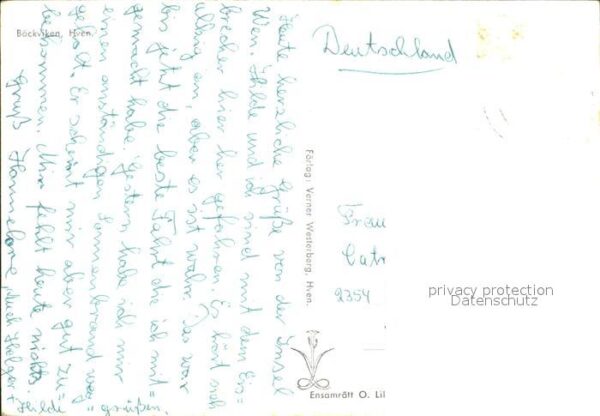 Bäckviken, Hven.
Heute herzliche Grüße von der Insel
Wen. Hilde und ich sind mit dem Eis=
brecher hier her gefahren. Es hört sich
ulkig an, aber es ist wahr. Das war
bis jetzt die beste Fahrt die ich mit=
gemacht habe. Gestern habe ich mir
einen anständigen Sonnenbrand weg=
geholt. Er scheint mir aber gut zu=
bekommen. Mir fehlt heute nichts.
Gruß Hannelore, Auch Holger +
Hilde grüßen.
Förlag: Verner Westerberg, Hven.
Deutschland
Frau
Catr
2354
privacy protection
Datenschutz
Ensamrätt O. Lil